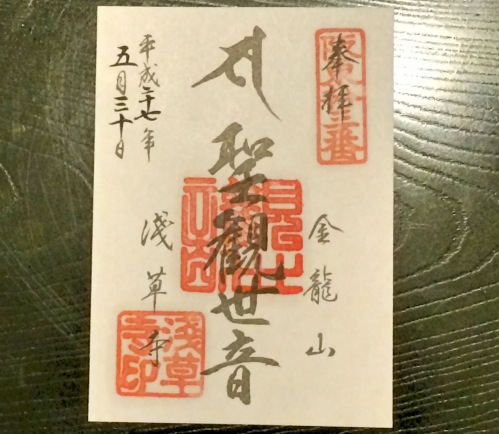 奉拝
金龍山
聖觀世音
淺草寺
淺草寺印
平成二十七年
五月三十日